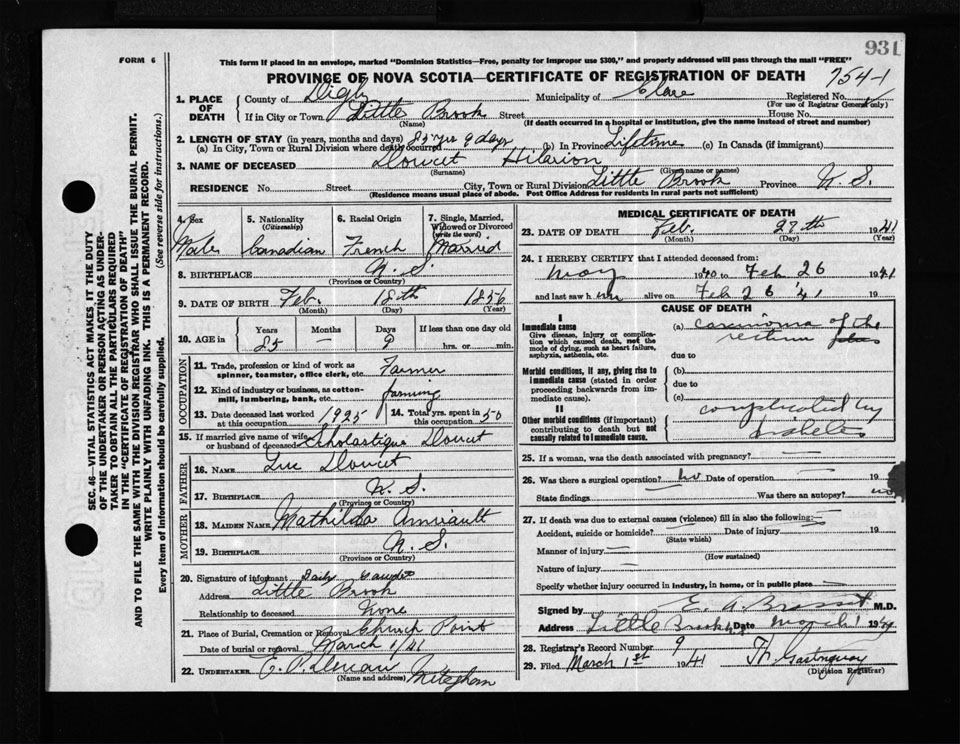 931
FORM 6
This form if placed in an envelope, marked "Dominion Statistics—Free, penalty for improper use $300," and properly addressed will pass through the mail "FREE"
PROVINCE OF NOVA SCOTIA—CERTIFICATE OF REGISTRATION OF DEATH
754-1
1. PLACE OF DEATH
County of Digby Municipality of Clare Registered No.
(For use of Registrar General only)
If in City or Town Little Brook Street House No.
(Name) (If death occurred in a hospital or institution, give the name instead of street and number)
2. LENGTH OF STAY (in years, months and days)
(a) In City, Town or Rural Division where death occurred 85 yrs 9 days (b) In Province Lifetime (c) In Canada (if immigrant)
3. NAME OF DECEASED Doucet Hilarion
(Surname) (Given name or names)
RESIDENCE No. Street City, Town or Rural Division Little Brook Province N. S.
(Residence means usual place of abode. Post Office Address for residents in rural parts not sufficient)
4. Sex 5. Nationality (Citizenship) 6. Racial Origin 7. Single, Married, Widowed or Divorced (write the word)
Male Canadian French Married
8. BIRTHPLACE N. S.
(Province or Country)
9. DATE OF BIRTH Feb. 18th 1856
(Month) (Day) (Year)
10. AGE in Years Months Days If less than one day old
85 — 9 hrs. or min.
OCCUPATION
11. Trade, profession or kind of work as spinner, teamster, office clerk, etc. Farmer
12. Kind of industry or business, as cotton-mill, lumbering, bank, etc. farming
13. Date deceased last worked at this occupation 1925 14. Total yrs. spent in this occupation 50
15. If married give name of wife or husband of deceased Scholastique Doucet
FATHER
16. NAME Luc Doucet
17. BIRTHPLACE N. S.
(Province or Country)
MOTHER
18. MAIDEN NAME Mathilda Amirault
19. BIRTHPLACE N. S.
(Province or Country)
20. Signature of informant
Address Little Brook
Relationship to deceased None
21. Place of Burial, Cremation or Removal Church Point
Date of burial or removal March 1/41
22. UNDERTAKER Meteghan
(Name and address)
MEDICAL CERTIFICATE OF DEATH
23. DATE OF DEATH Feb. 27th 1941
(Month) (Day) (Year)
24. I HEREBY CERTIFY that I attended deceased from:
May 1940 to Feb 26 1941
and last saw him alive on Feb 26 '41 19
CAUSE OF DEATH
I
Immediate cause
Give disease, injury or complication which caused death, not the mode of dying, such as heart failure, asphyxia, asthenia, etc.
(a) carcinoma of the rectum
due to
Morbid conditions, if any, giving rise to immediate cause (stated in order proceeding backwards from immediate cause).
(b)
due to
(c)
II
Other morbid conditions (if important) contributing to death but not causally related to immediate cause.
complicated by diabetes
25. If a woman, was the death associated with pregnancy? —
26. Was there a surgical operation? no Date of operation 19
State findings — Was there an autopsy? no
27. If death was due to external causes (violence) fill in also the following:
Accident, suicide or homicide? Date of injury 19
(State which)
Manner of injury —
(How sustained)
Nature of injury —
Specify whether injury occurred in industry, in home, or in public place —
Signed by M.D.
Address Little Brook Date March 1 1941
28. Registrar's Record Number 9
29. Filed March 1st 1941
(Division Registrar)
SEC. 46—VITAL STATISTICS ACT MAKES IT THE DUTY
OF THE UNDERTAKER OR PERSON ACTING AS UNDER-
TAKER TO OBTAIN ALL THE PARTICULARS REQUIRED
IN THE "CERTIFICATE OF REGISTRATION OF DEATH"
AND TO FILE THE SAME WITH THE DIVISION REGISTRAR WHO SHALL ISSUE THE BURIAL PERMIT.
WRITE PLAINLY WITH UNFADING INK. THIS IS A PERMANENT RECORD.
Every item of Information should be carefully supplied. (See reverse side for instructions.)